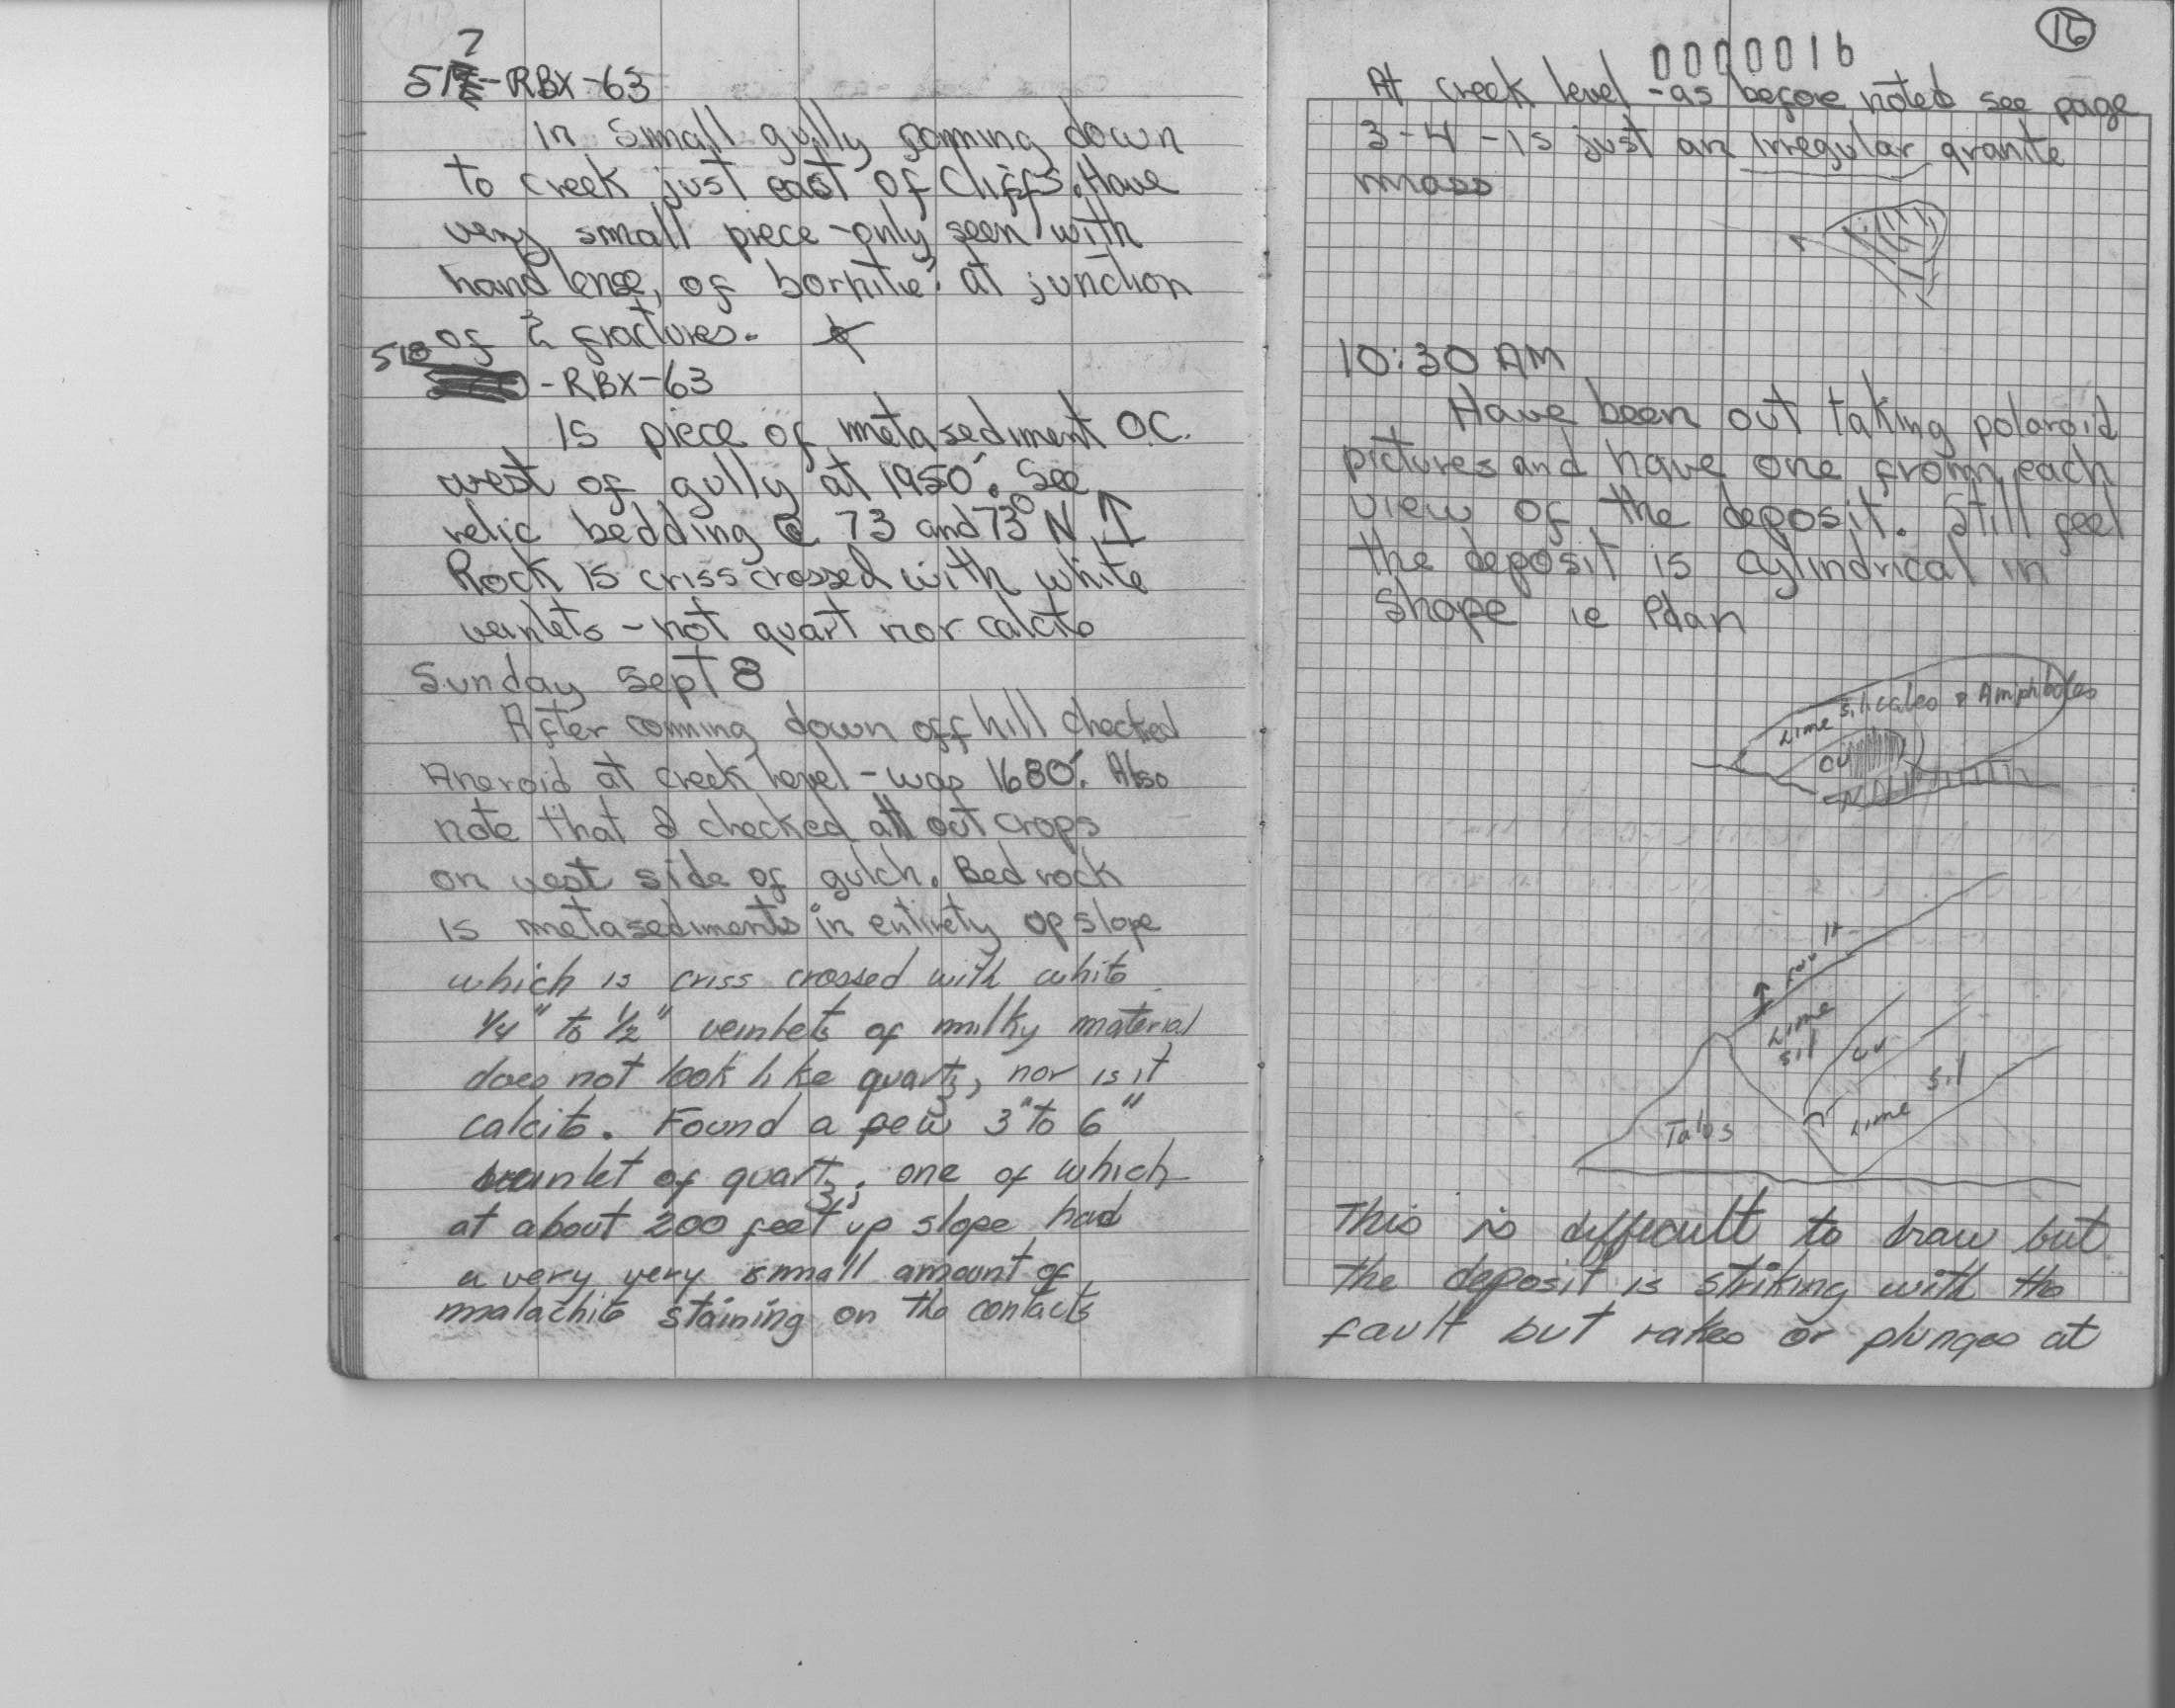 517-RBX-63
In small gully comming down
to creek just east of Cliffs. Have
very small piece-only seen with
hand lense, of bornite? at junction
of 2 fractures.
518-RBX-63
Is piece of metasediment O.C.
west of gully at 1950'. See
relic bedding @ 73 and 73° N
Rock is criss crossed with white
veinlets - not quart nor calcite
Sunday Sept 8
After coming down off hill checked
Aneroid at creek level - was 1680'. Also
note that I checked all out crops
on west side of gulch. Bed rock
is metasediments in entirety up slope
which is criss crossed with white
1/4" to 1/2" veinlets of milky material
does not look like quartz, nor is it
calcite. Found a few 3" to 6"
veinlet of quartz, one of which
at about 200 feet up slope had
a very very small amount of
malachite staining on the contacts
16
0000016
At creek level - as before noted see page
3-4 - is just an irregular granite
mass
10:30 AM
Have been out taking polaroid
pictures and have one from each
view of the deposit. Still feel
the deposit is cylindrical in
shape ie Plan
Lime silicates & Amphiboles
Cu
Fault
Lime
sil
Cu
Lime sil
Talus
This is difficult to draw but
the deposit is striking with the
fault but rakes or plunges at